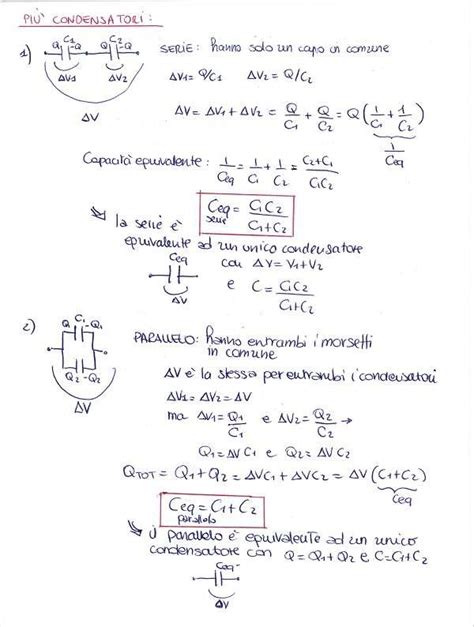 PIU' CONDENSATORI:
1) Q C1 -Q Q C2 -Q SERIE: hanno solo un capo in comune
ΔV1 ΔV2 ΔV1 = Q/C1 ΔV2 = Q/C2
ΔV ΔV = ΔV1 + ΔV2 = Q/C1 + Q/C2 = Q(1/C1 + 1/C2)
1/Ceq
Capacità equivalente: 1/Ceq = 1/C1 + 1/C2 = C2+C1/C1C2
Ceq serie = C1C2/C1+C2
la serie è
equivalente ad un unico condensatore
Ceq con ΔV = V1+V2
ΔV e C = C1C2/C1+C2
2) Q C1 -Q1 PARALLELO: hanno entrambi i morsetti
in comune
Q2 -Q2 ΔV è la stessa per entrambi i condensatori
ΔV ΔV1 = ΔV2 = ΔV
ma ΔV1 = Q1/C1 e ΔV2 = Q2/C2 →
Q1 = ΔV C1 e Q2 = ΔV C2
QTOT = Q1 + Q2 = ΔVC1 + ΔVC2 = ΔV(C1+C2)
Ceq
Ceq parallelo = C1+C2
il parallelo è equivalente ad un unico
condensatore con Q = Q1+Q2 e C = C1+C2
Ceq
ΔV